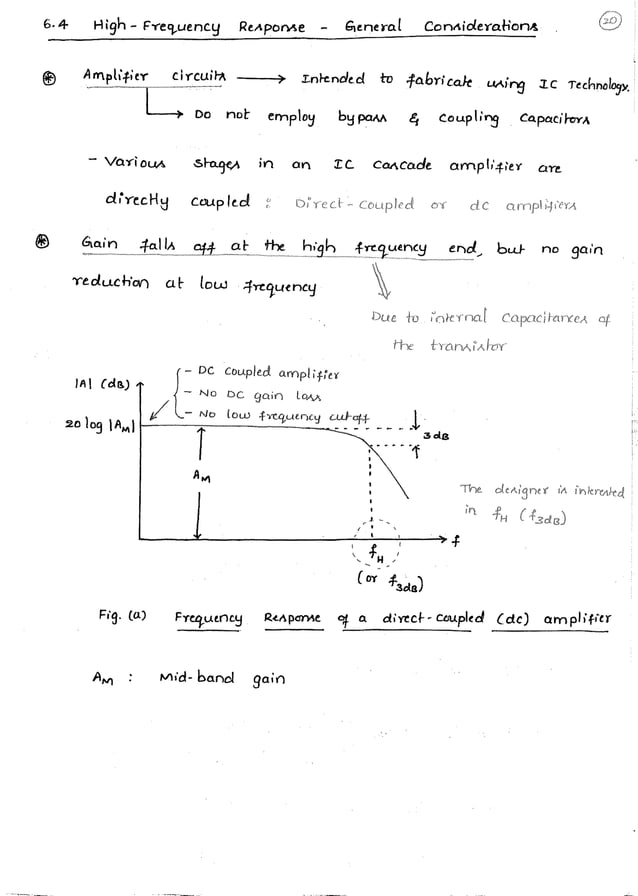 6.4 High-Frequency Response - General Considerations. 20
⊛ Amplifier circuits ⟶ Intended to fabricate using IC Technology.
→ Do not employ bypass & coupling capacitors
- Various stages in an IC cascade amplifier are
directly coupled : Direct-coupled or dc amplifiers
⊛ Gain falls off at the high frequency end, but no gain
reduction at low frequency
Due to internal capacitances of
the transistor
|A| (dB)
- DC coupled amplifier
- No DC gain loss
- No low frequency cutoff
20 log |AM|
3dB
AM
The designer is interested
in fH (f3dB)
f
fH
(or f3dB)
Fig. (a) Frequency Response of a direct-coupled (dc) amplifier
AM : Mid-band gain